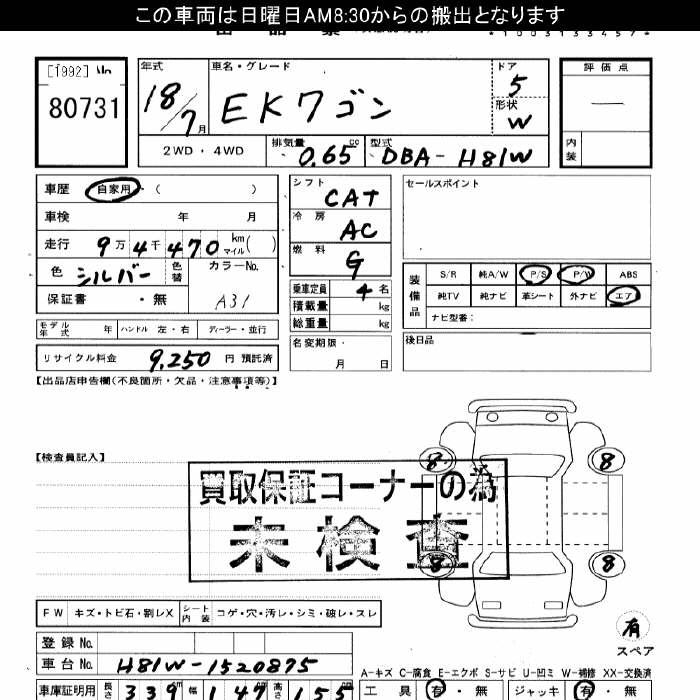 この車両は日曜日AM8:30からの搬出となります
[1992] No
80731
年式 18/7月
車名・グレード EKワゴン
ドア 5
形状 W
評価点 —
内装
2WD・4WD
排気量 0.65 cc
型式 DBA-H81W
車歴 自家用 ( )
車検 年 月
走行 9万4千470 km マイル( )
色 シルバー 色替 カラーNo. A31
保証書 ・無
モデル年式 年 ハンドル 左・右 ディーラー・並行
リサイクル料金 9,250 円 預託済
シフト CAT
冷房 AC
燃料 G
乗車定員 4 名
積載量 kg
総重量 kg
名変期限・ 月 日
セールスポイント
装備品 S/R 純A/W P/S P/W ABS
純TV 純ナビ 革シート 外ナビ エア
ナビ型番:
後日品
【出品店申告欄(不良箇所・欠品・注意事項等)】
【検査員記入】
買取保証コーナーの為
未検査
8 8
8 8
有
スペア
FW キズ・トビ石・割レX シート内装 コゲ・穴・汚レ・シミ・破レ・スレ
登録No.
車台No. H81W-1520875
車庫証明用 長さ 339 幅 147 高さ 155
A-キズ C-腐食 E-エクボ S-サビ U-凹ミ W-補修 XX-交換済
工具 有・無 ジャッキ 有・無